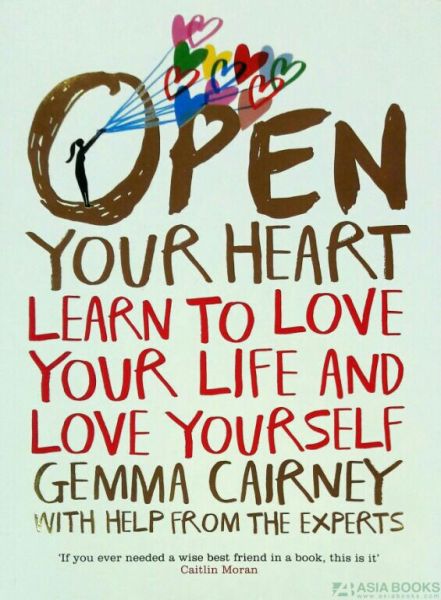 OPEN
YOUR HEART
LEARN TO LOVE
YOUR LIFE AND
LOVE YOURSELF
GEMMA CAIRNEY
WITH HELP FROM THE EXPERTS
'If you ever needed a wise best friend in a book, this is it'
Caitlin Moran
ASIA BOOKS
www.asiabooks.com